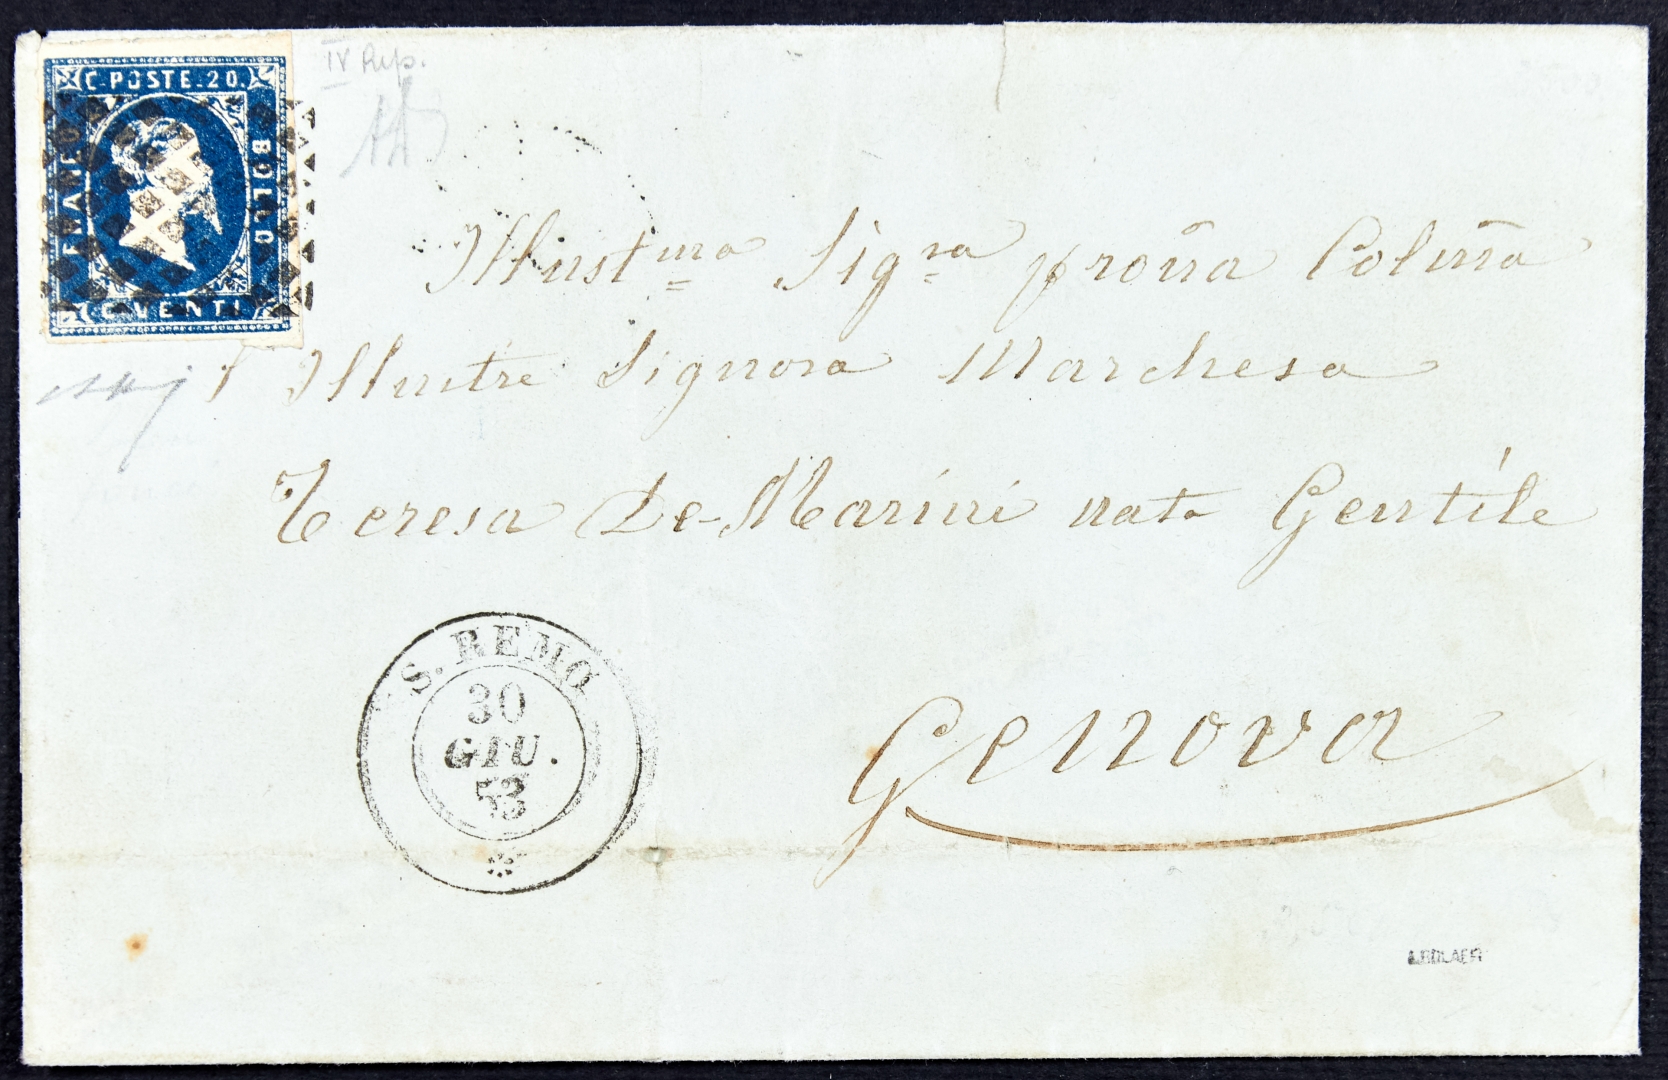 C. POSTE. 20.
FRANCO
BOLLO
C. VENTI
IV Rip.
Illust.ma Sig.ra proña Colma
Illustre Signora Marchesa
Teresa De-Marini nata Gentile
Genova
S. REMO
30
GIU.
53
A. BOLAFFI